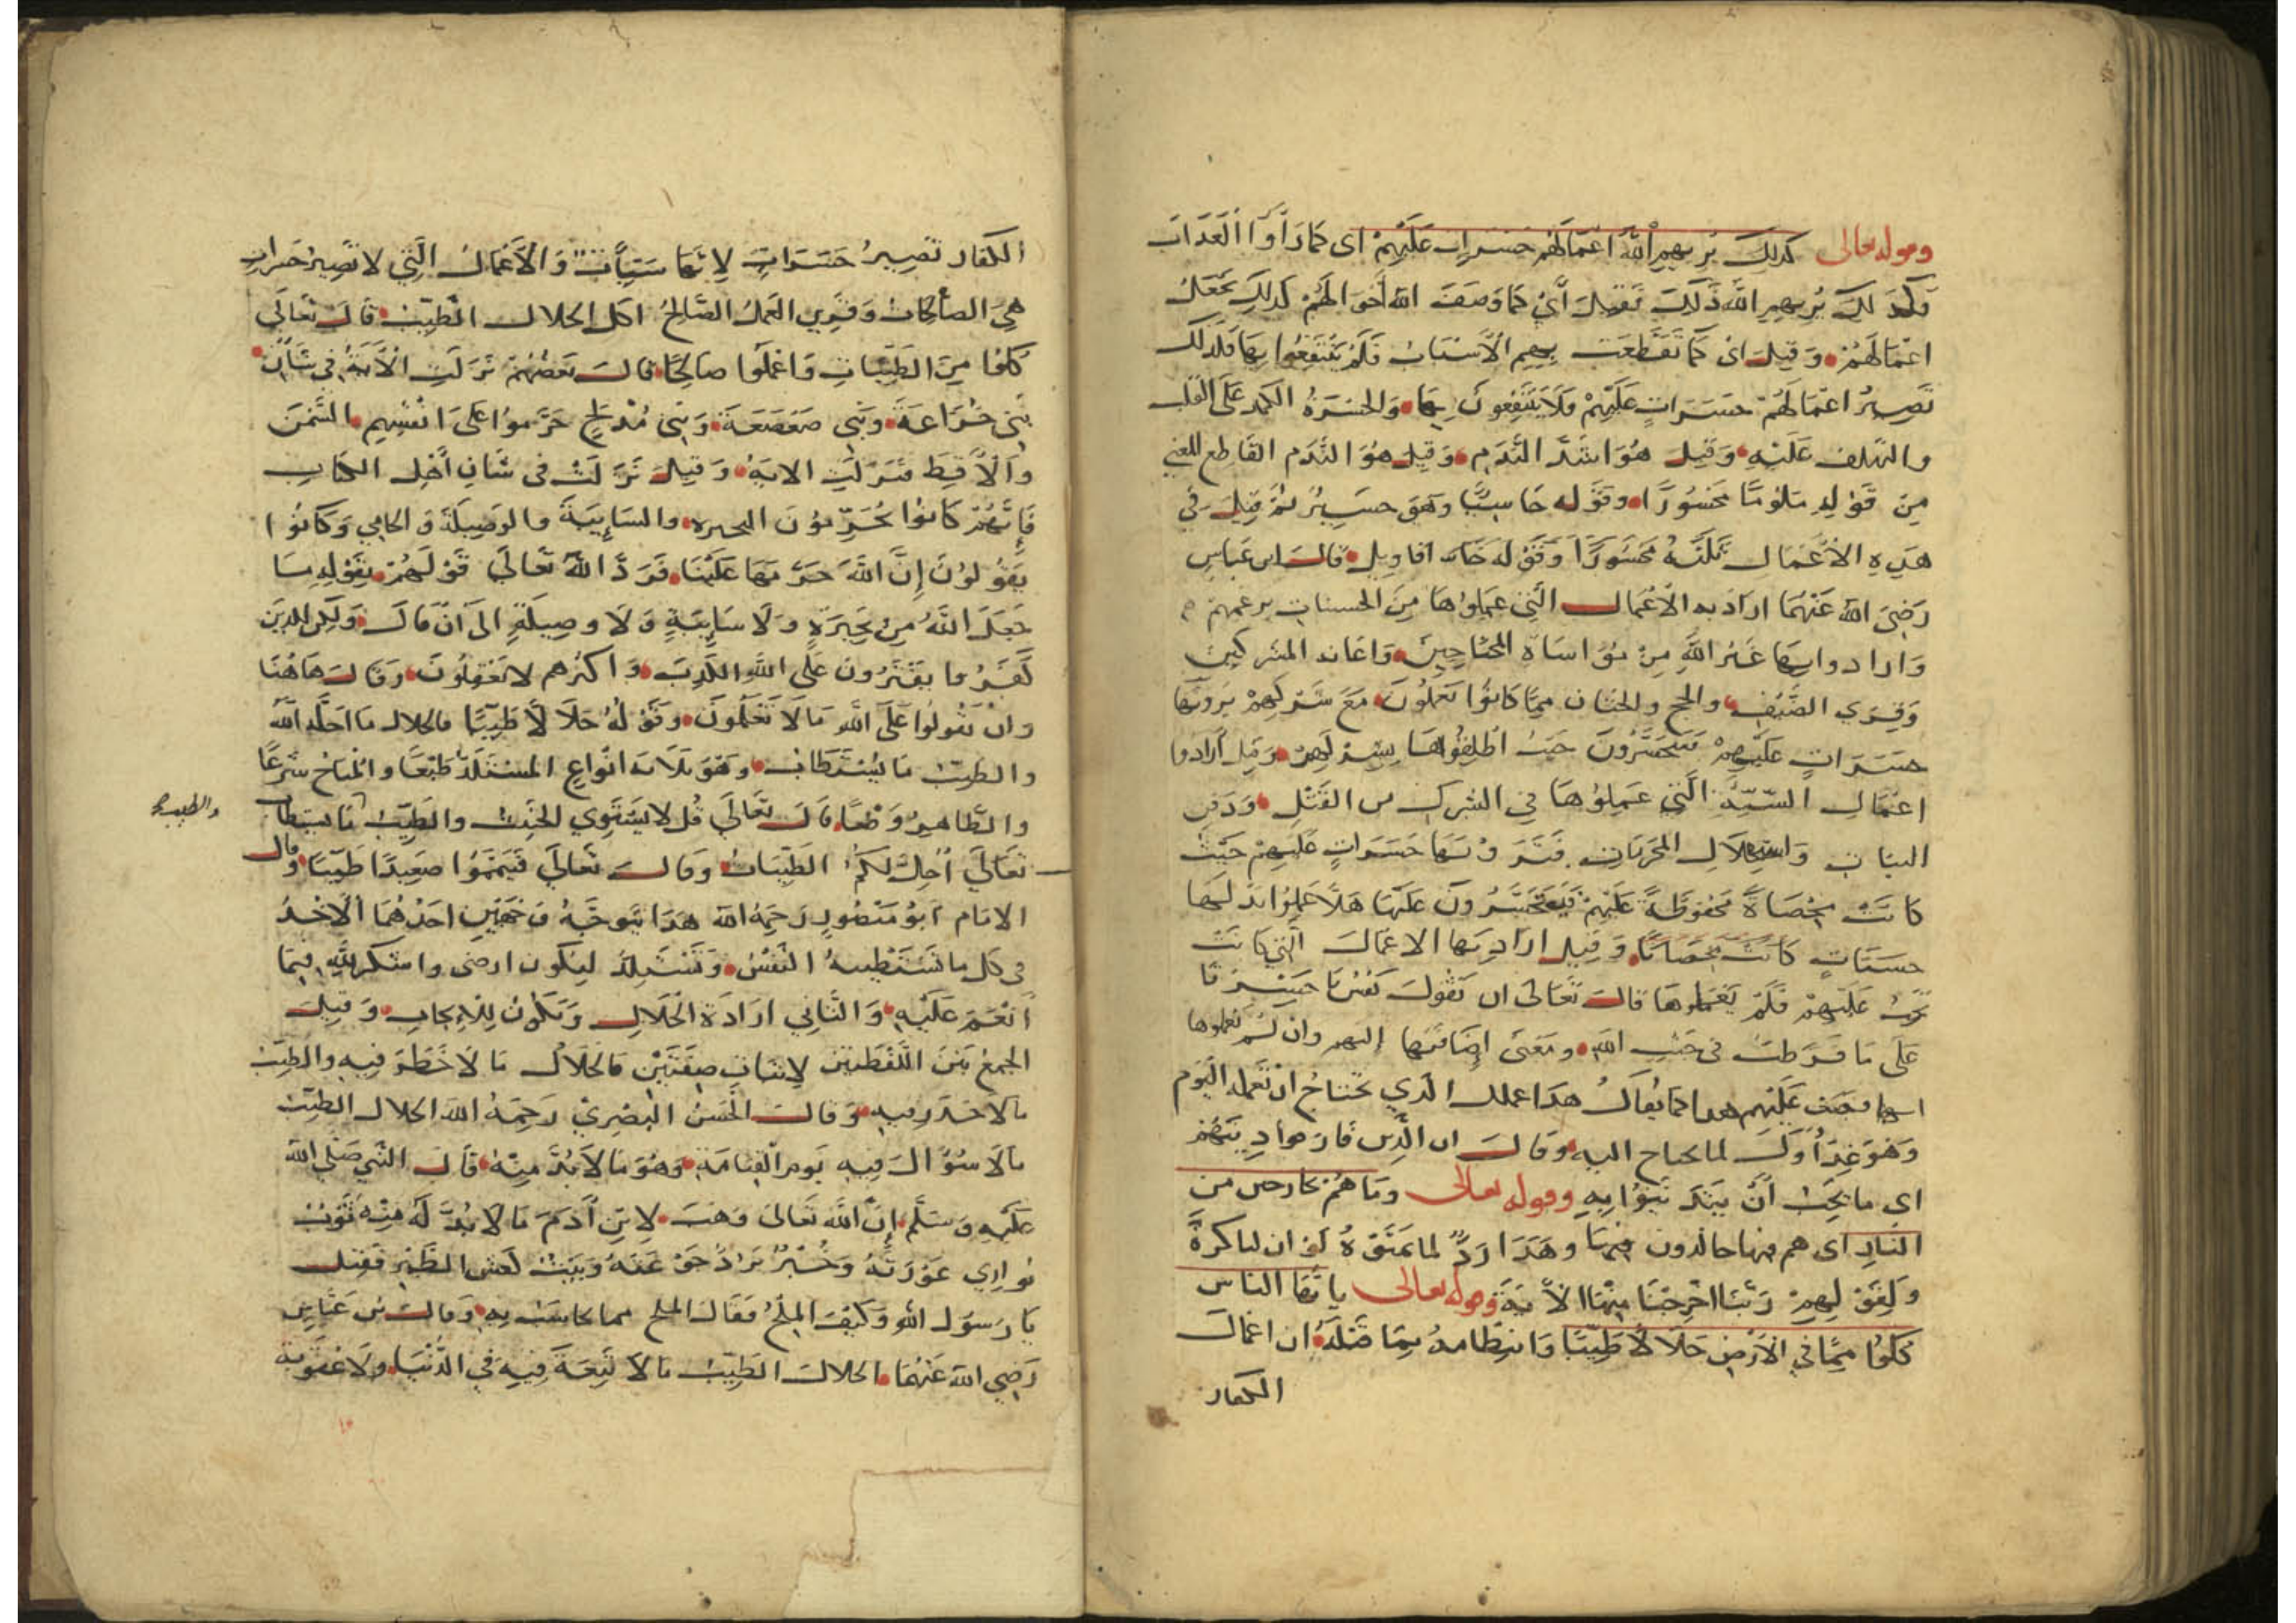 وقوله تعالى كذلك يريهم الله اعمالهم حسرات عليهم اى كما راوا العذاب
وكذلك يريهم الله ذلك وقيل أي كما وصف الله أحوالهم كذلك يجعل
اعمالهم وقيل اى كما تقطعت بهم الأسباب فلم ينتفعوا بها فكذلك
تصير اعمالهم حسرات عليهم ولا ينتفعون بها والحسرة الكمد على القلب
والتلهف عليه وقيل هو اشد الندم وقيل هو الندم القاطع للمعنى
من قوله ملوما محسورا وقوله خاسئا وهو حسير ثم قيل في
هذه الأعمال ثلثة اقاويل قال ابن عباس
رضي الله عنهما اراد به الأعمال التي عملوها من الحسنات بزعمهم
وارادوا بها غير الله من مؤاساة المحتاجين واعانة المشركين
وقرى الضيف والحج مما كانوا يعملون مع شركهم يرونها
حسرات عليهم فيتحسرون حيث ابطلوها بشركهم وقيل أرادوا
اعمال السيئة التي عملوها في الشرك من القتل ودفن
البنات واستحلال المحرمات فيرونها حسرات عليهم حيث
كانت محصاة محفوظة عليهم فيتحسرون عليها هلا عملوا بدلها
حسنات وقيل اراد بها الاعمال التي كانت
تجب عليهم فلم يعملوها قال تعالى ان تقول نفس يا حسرتا
على ما فرطت في جنب الله ومعنى إضافتها إليهم وان لم يعملوها
انها وجبت عليهم هذا كما يقال هذا عملك الذي تحتاج ان تعمله اليوم
وقال ان الذين
اي ما يجب أن وقوله تعالى وما هم بخارجين من
النار اى هم فيها خالدون وهذا رد لما تمنوه لو ان لنا كرة
ولقولهم ربنا اخرجنا منها الأية وقوله تعالى يا يها الناس
كلوا مما في الارض حلالا طيبا وانتظامه بما قبله ان اعمال
الكفار
الكفار تصير حسرات لانها سيئات والأعمال التي لا تصير حسرات
هي الصالحات العمل الصالح اكل الحلال الطيب قال تعالى
كلوا من الطيبات واعملوا صالحا قال بعضهم نزلت الأية في شان
بني خزاعة وبني صعصعة وبني مدلج حرموا على انفسهم السمن
والأقط فنزلت الاية وقيل نزلت في شان أهل الكتاب
فإنهم كانوا يحرمون البحيرة والسايبة والوصيلة والحامي وكانوا
يقولون إن الله حرمها علينا فرد الله تعالى قولهم بقوله ما
جعل الله من بحيرة ولا سايبة ولا وصيلة الى أن قال ولكن الذين
كفروا يفترون على الله الكذب واكثرهم لا يعقلون وقال هاهنا
وان تقولوا على الله ما لا تعلمون وقوله حلالا طيبا فالحلال ما احله الله
والطيب ما يستطاب وهو ثلاثة انواع المستلذ طبعا والمباح شرعا
والطاهر وضعا قال تعالى قل لا يستوي الخبيث والطيب
والطيب
تعالى أحل لكم الطيبات وقال تعالى فتيمموا صعيدا طيبا وقال
الامام ابو منصور رحمه الله هذا يتوجه وجهين احدهما الاخذ
في كل ما تستطيبه النفس وتستلذ ليكون ارضى واشكر لله فيما
أنعم عليه والثاني ارادة الحلال ويكون للايجاب وقيل
الجمع بين اللفظتين لاثبات صفتين فالحلال ما لا خطر فيه والطيب
ما لا قذر فيه وقال الحسن البصري رحمه الله الحلال الطيب
ما لا سؤال فيه يوم القيامة وهو ما لا بد منه قال النبي صلى الله
عليه وسلم إن الله تعالى وهب لابن آدم ما لا بد له منه ثوب
يواري عورته وخبز يرد جوعته وبيت كعش الطير فقيل
يا رسول الله وكيف الملح فقال الملح مما يحاسب به وقال ابن عباس
رضي الله عنهما الحلال الطيب ما لا تبعة فيه في الدنيا ولا عقوبة